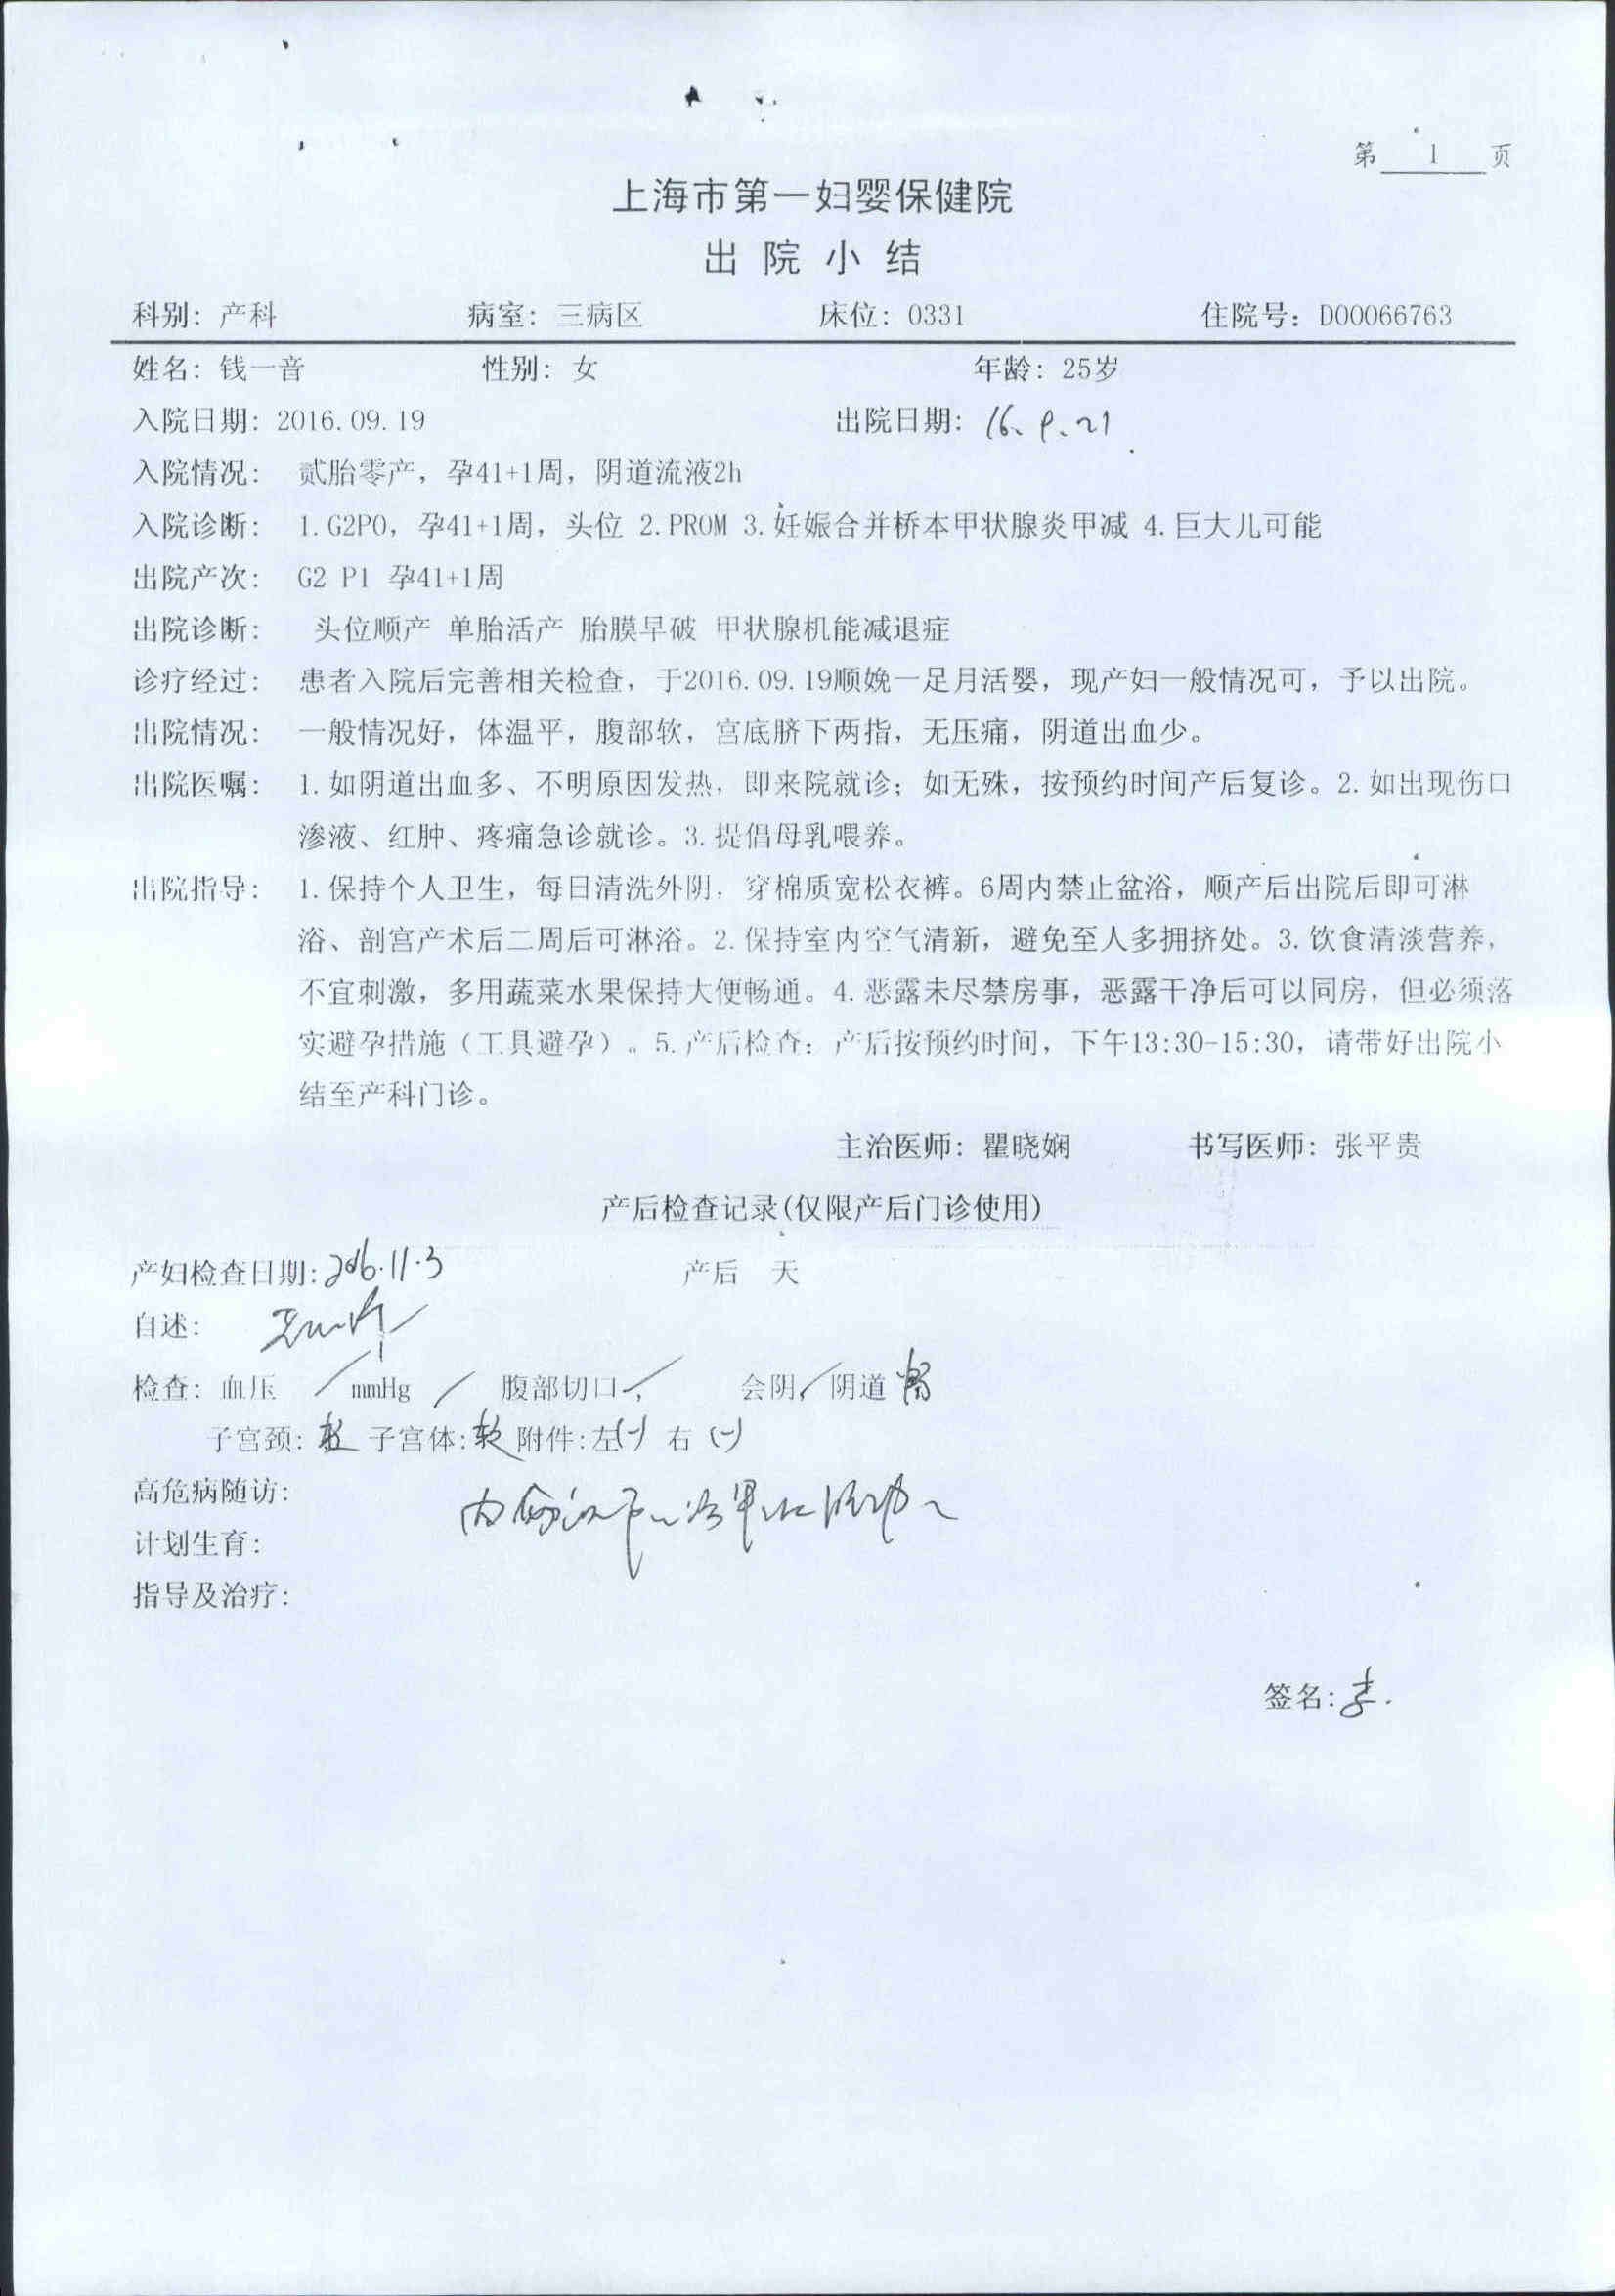 第 1 页
上海市第一妇婴保健院
出院小结
科别: 产科 病室: 三病区 床位: 0331 住院号: D00066763
姓名: 钱一音 性别: 女 年龄: 25岁
入院日期: 2016.09.19 出院日期: 16.9.21
入院情况: 贰胎零产，孕41+1周，阴道流液2h
入院诊断: 1.G2P0，孕41+1周，头位 2.PROM 3.妊娠合并桥本甲状腺炎甲减 4.巨大儿可能
出院产次: G2 P1 孕41+1周
出院诊断: 头位顺产 单胎活产 胎膜早破 甲状腺机能减退症
诊疗经过: 患者入院后完善相关检查，于2016.09.19顺娩一足月活婴，现产妇一般情况可，予以出院。
出院情况: 一般情况好，体温平，腹部软，宫底脐下两指，无压痛，阴道出血少。
出院医嘱: 1.如阴道出血多、不明原因发热，即来院就诊；如无殊，按预约时间产后复诊。2.如出现伤口
渗液、红肿、疼痛急诊就诊。3.提倡母乳喂养。
出院指导: 1.保持个人卫生，每日清洗外阴，穿棉质宽松衣裤。6周内禁止盆浴，顺产后出院后即可淋
浴、剖宫产术后二周后可淋浴。2.保持室内空气清新，避免至人多拥挤处。3.饮食清淡营养，
不宜刺激，多用蔬菜水果保持大便畅通。4.恶露未尽禁房事，恶露干净后可以同房，但必须落
实避孕措施（工具避孕）。5.产后检查：产后按预约时间，下午13:30-15:30，请带好出院小
结至产科门诊。
主治医师: 瞿晓娴 书写医师: 张平贵
产后检查记录(仅限产后门诊使用)
产妇检查日期: 2016.11.3 产后 天
自述:
检查: 血压 / mmHg / 腹部切口 / 会阴 / 阴道
子宫颈: 子宫体: 软 附件:左(-) 右(-)
高危病随访:
计划生育:
指导及治疗:
签名: 李.